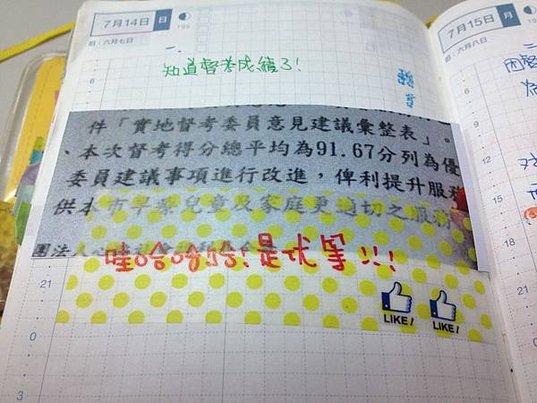 7月14日 日
195
舊:六月七日
一、
知道督考成績了!
6
件「實地督考委員意見建議彙整表」。
、本次督考得分總平均為91.67分列為優
委員建議事項進行改進,俾利提升服務
供本市早療兒童及家庭更適切之服務
團法人
哇哈哈哈!是優等!!!
21
0
LIKE!
LIKE!
7月15日 月
舊:六月八日
6
9
12
15
18